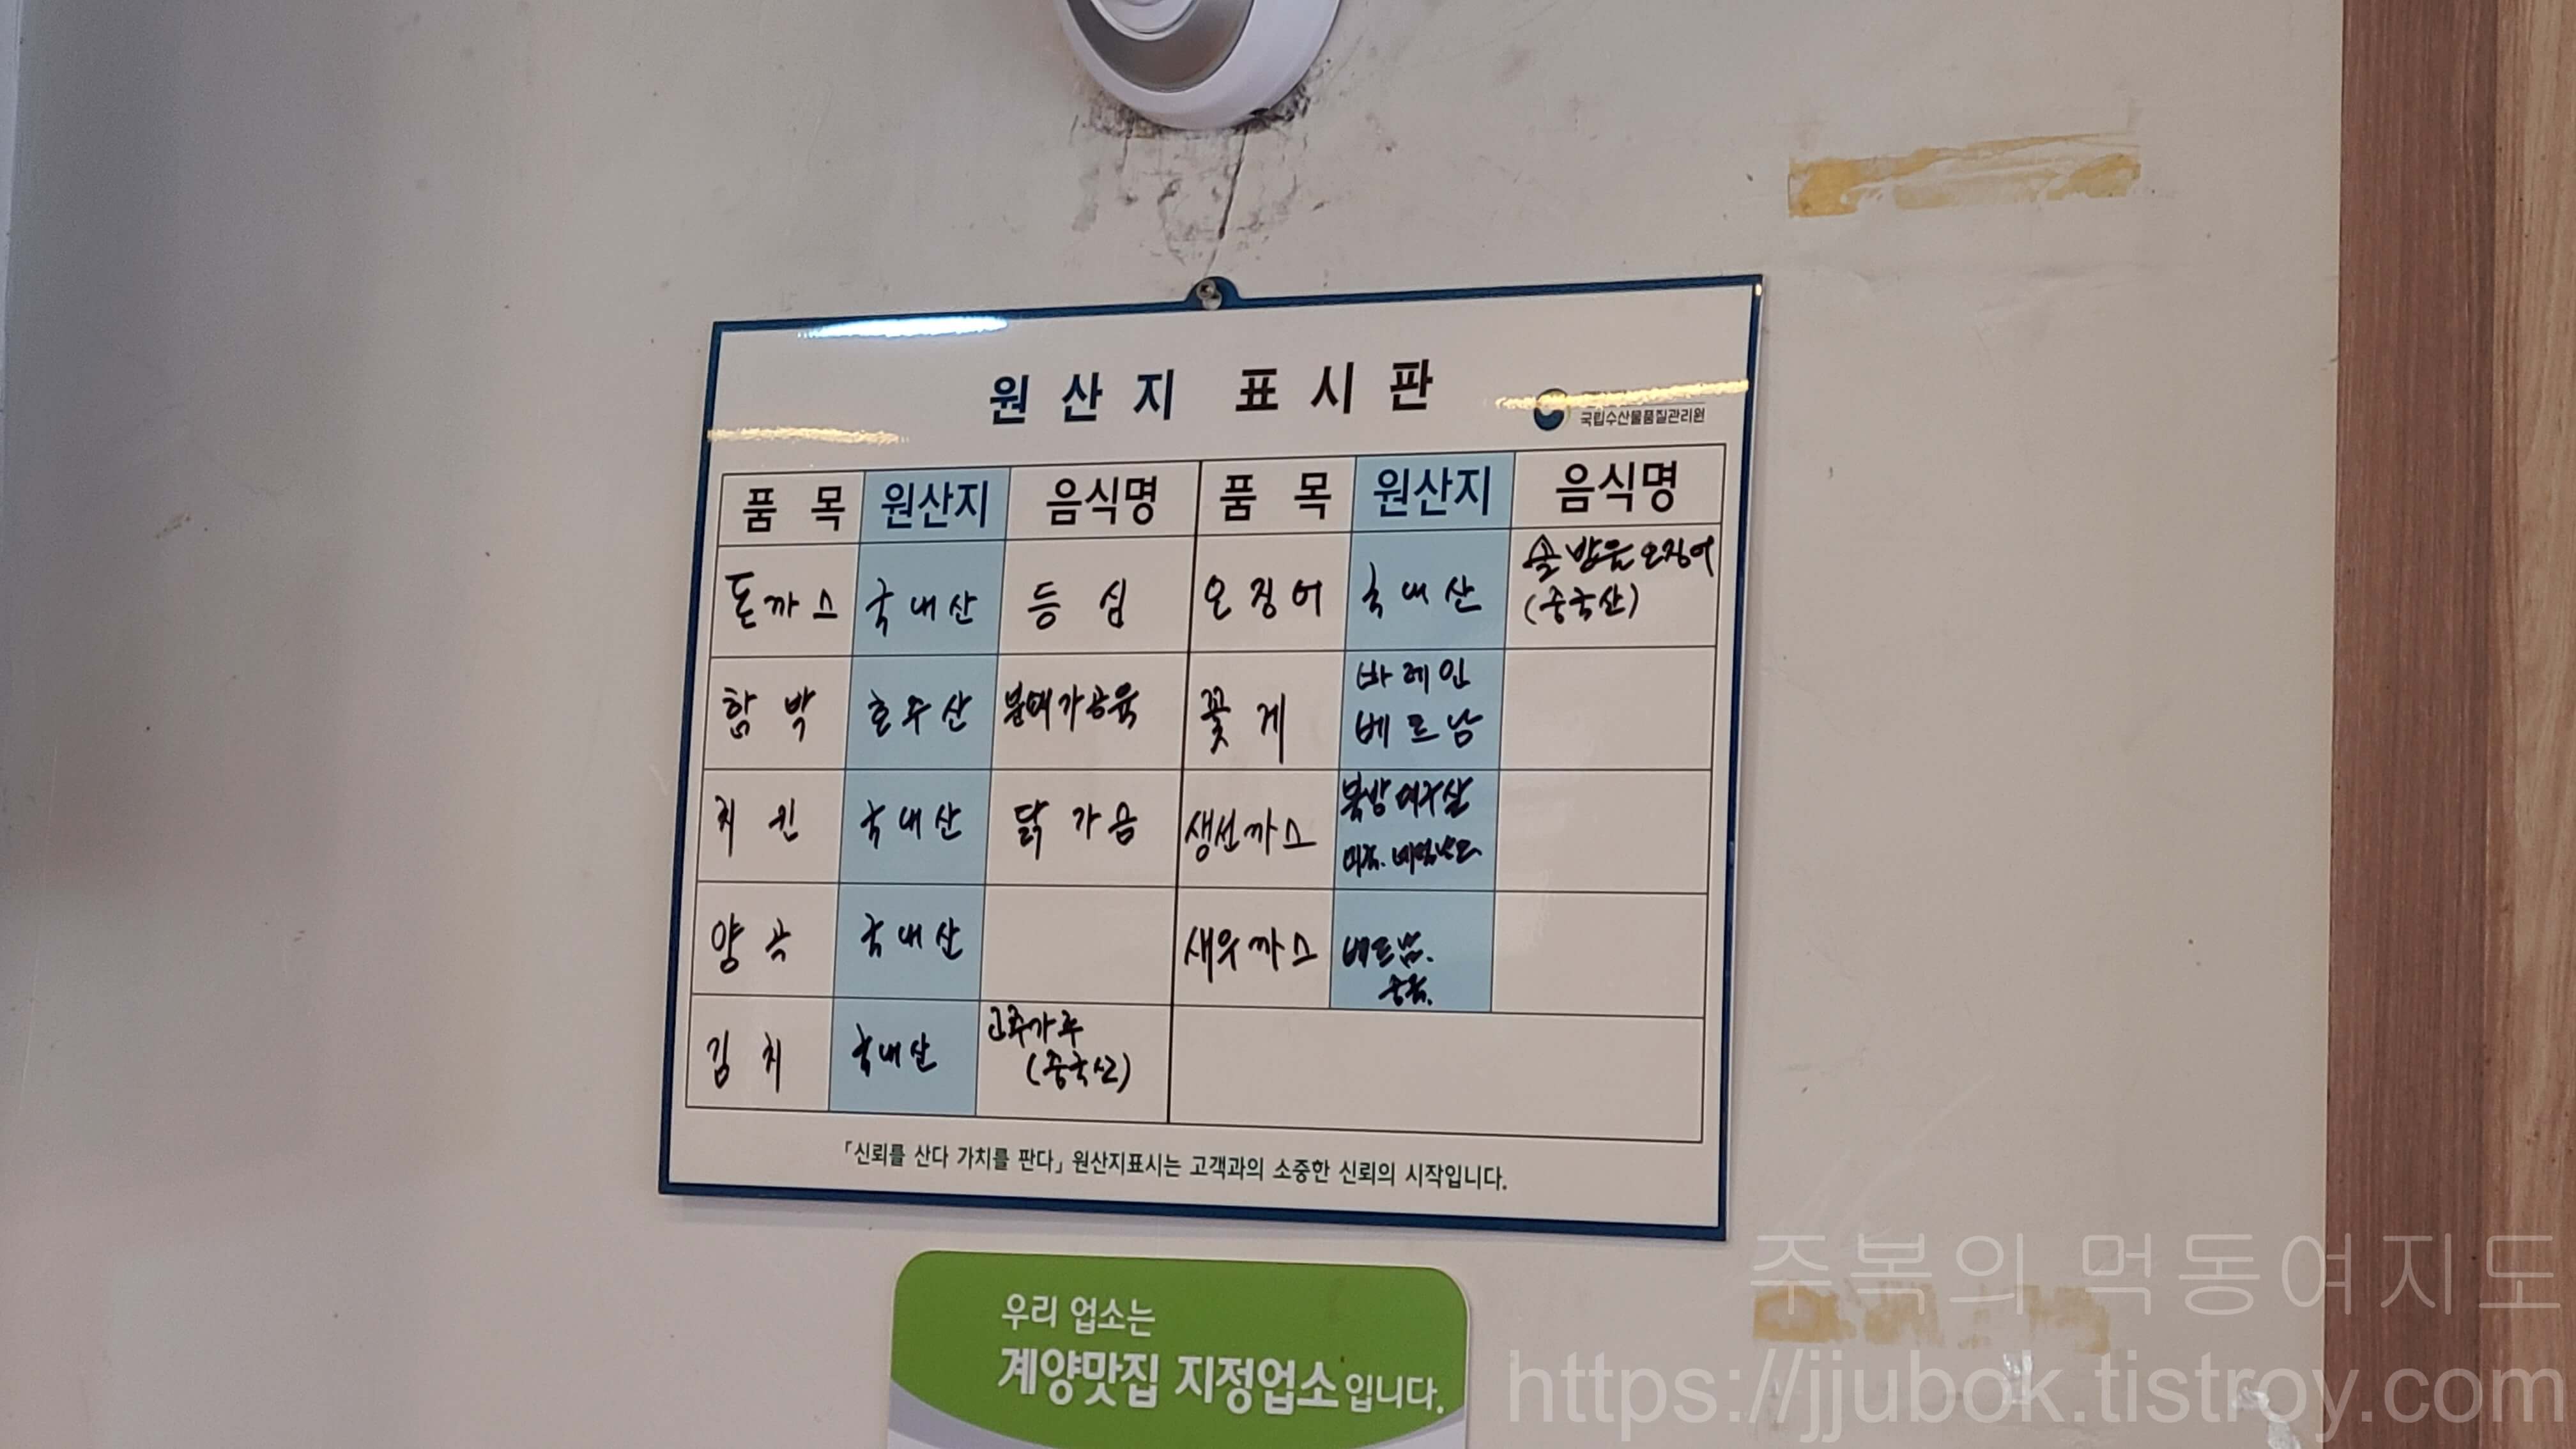 원산지 표시판
국립수산물품질관리원
품 목 원산지 음식명 품 목 원산지 음식명
돈까스 국내산 등심 오징어 국내산 솔방울오징어
(중국산)
함박 호주산 분쇄가공육 꽃게 바레인
베트남
치킨 국내산 닭가슴 생선까스 북방대구살
미국.
양곡 국내산 새우까스 베트남.
중국.
김치 국내산 고추가루
(중국산)
「신뢰를 산다 가치를 판다」 원산지표시는 고객과의 소중한 신뢰의 시작입니다.
우리 업소는
계양맛집 지정업소입니다.
주복의 먹동여지도
https://jjubok.tistroy.com